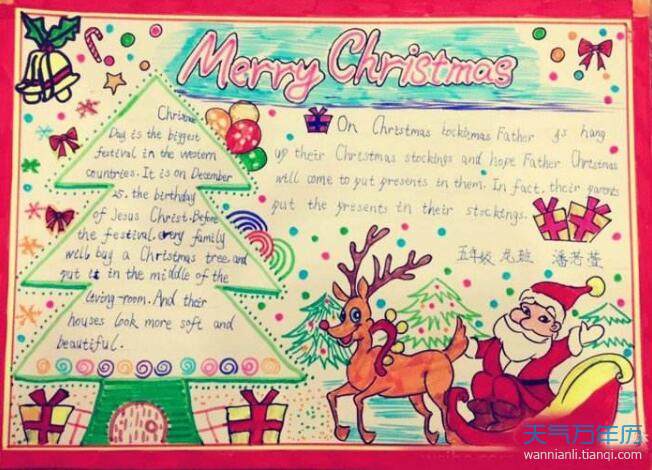 Merry Christmas
Christmas
Day is the biggest
festival in the western
countries. It is on December
25. the birthday
of Jesus Christ. Before
the festival. every family
will buy a Christmas tree and
put it in the middle of the
living-room. And their
houses look more soft and
beautiful.
On Christmas Father hang
up their Christmas stockings and hope Father Christmas
will come to put presents in them. In fact, their parents
put the presents in their stockings.
五年级 班 潘若萱
天气万年历
wannianli.tianqi.com